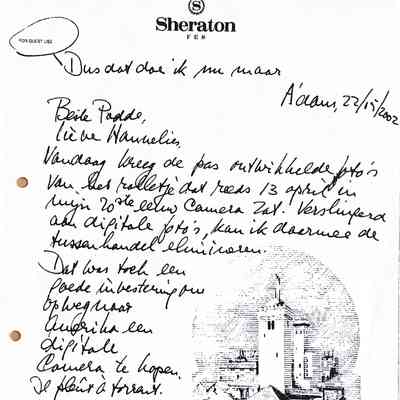 Sheraton
FES
FOR GUEST USE
Dus dat doe ik nu maar
A'dam, 22/15/2002
Beste Padde,
lieve Hannelies,
Vandaag kreeg de pas ontwikkelde foto's
van het rolletje dat reeds 13 april in
mijn 20ste eeuw Camera zat. Verslingerd
aan digitale foto's, kan ik daarmee de
tussenhandel elimineren.
Dat was toch een
goede investering om
op weg naar
Amerika een
digitale
Camera te kopen.
Il pleut à torrent.